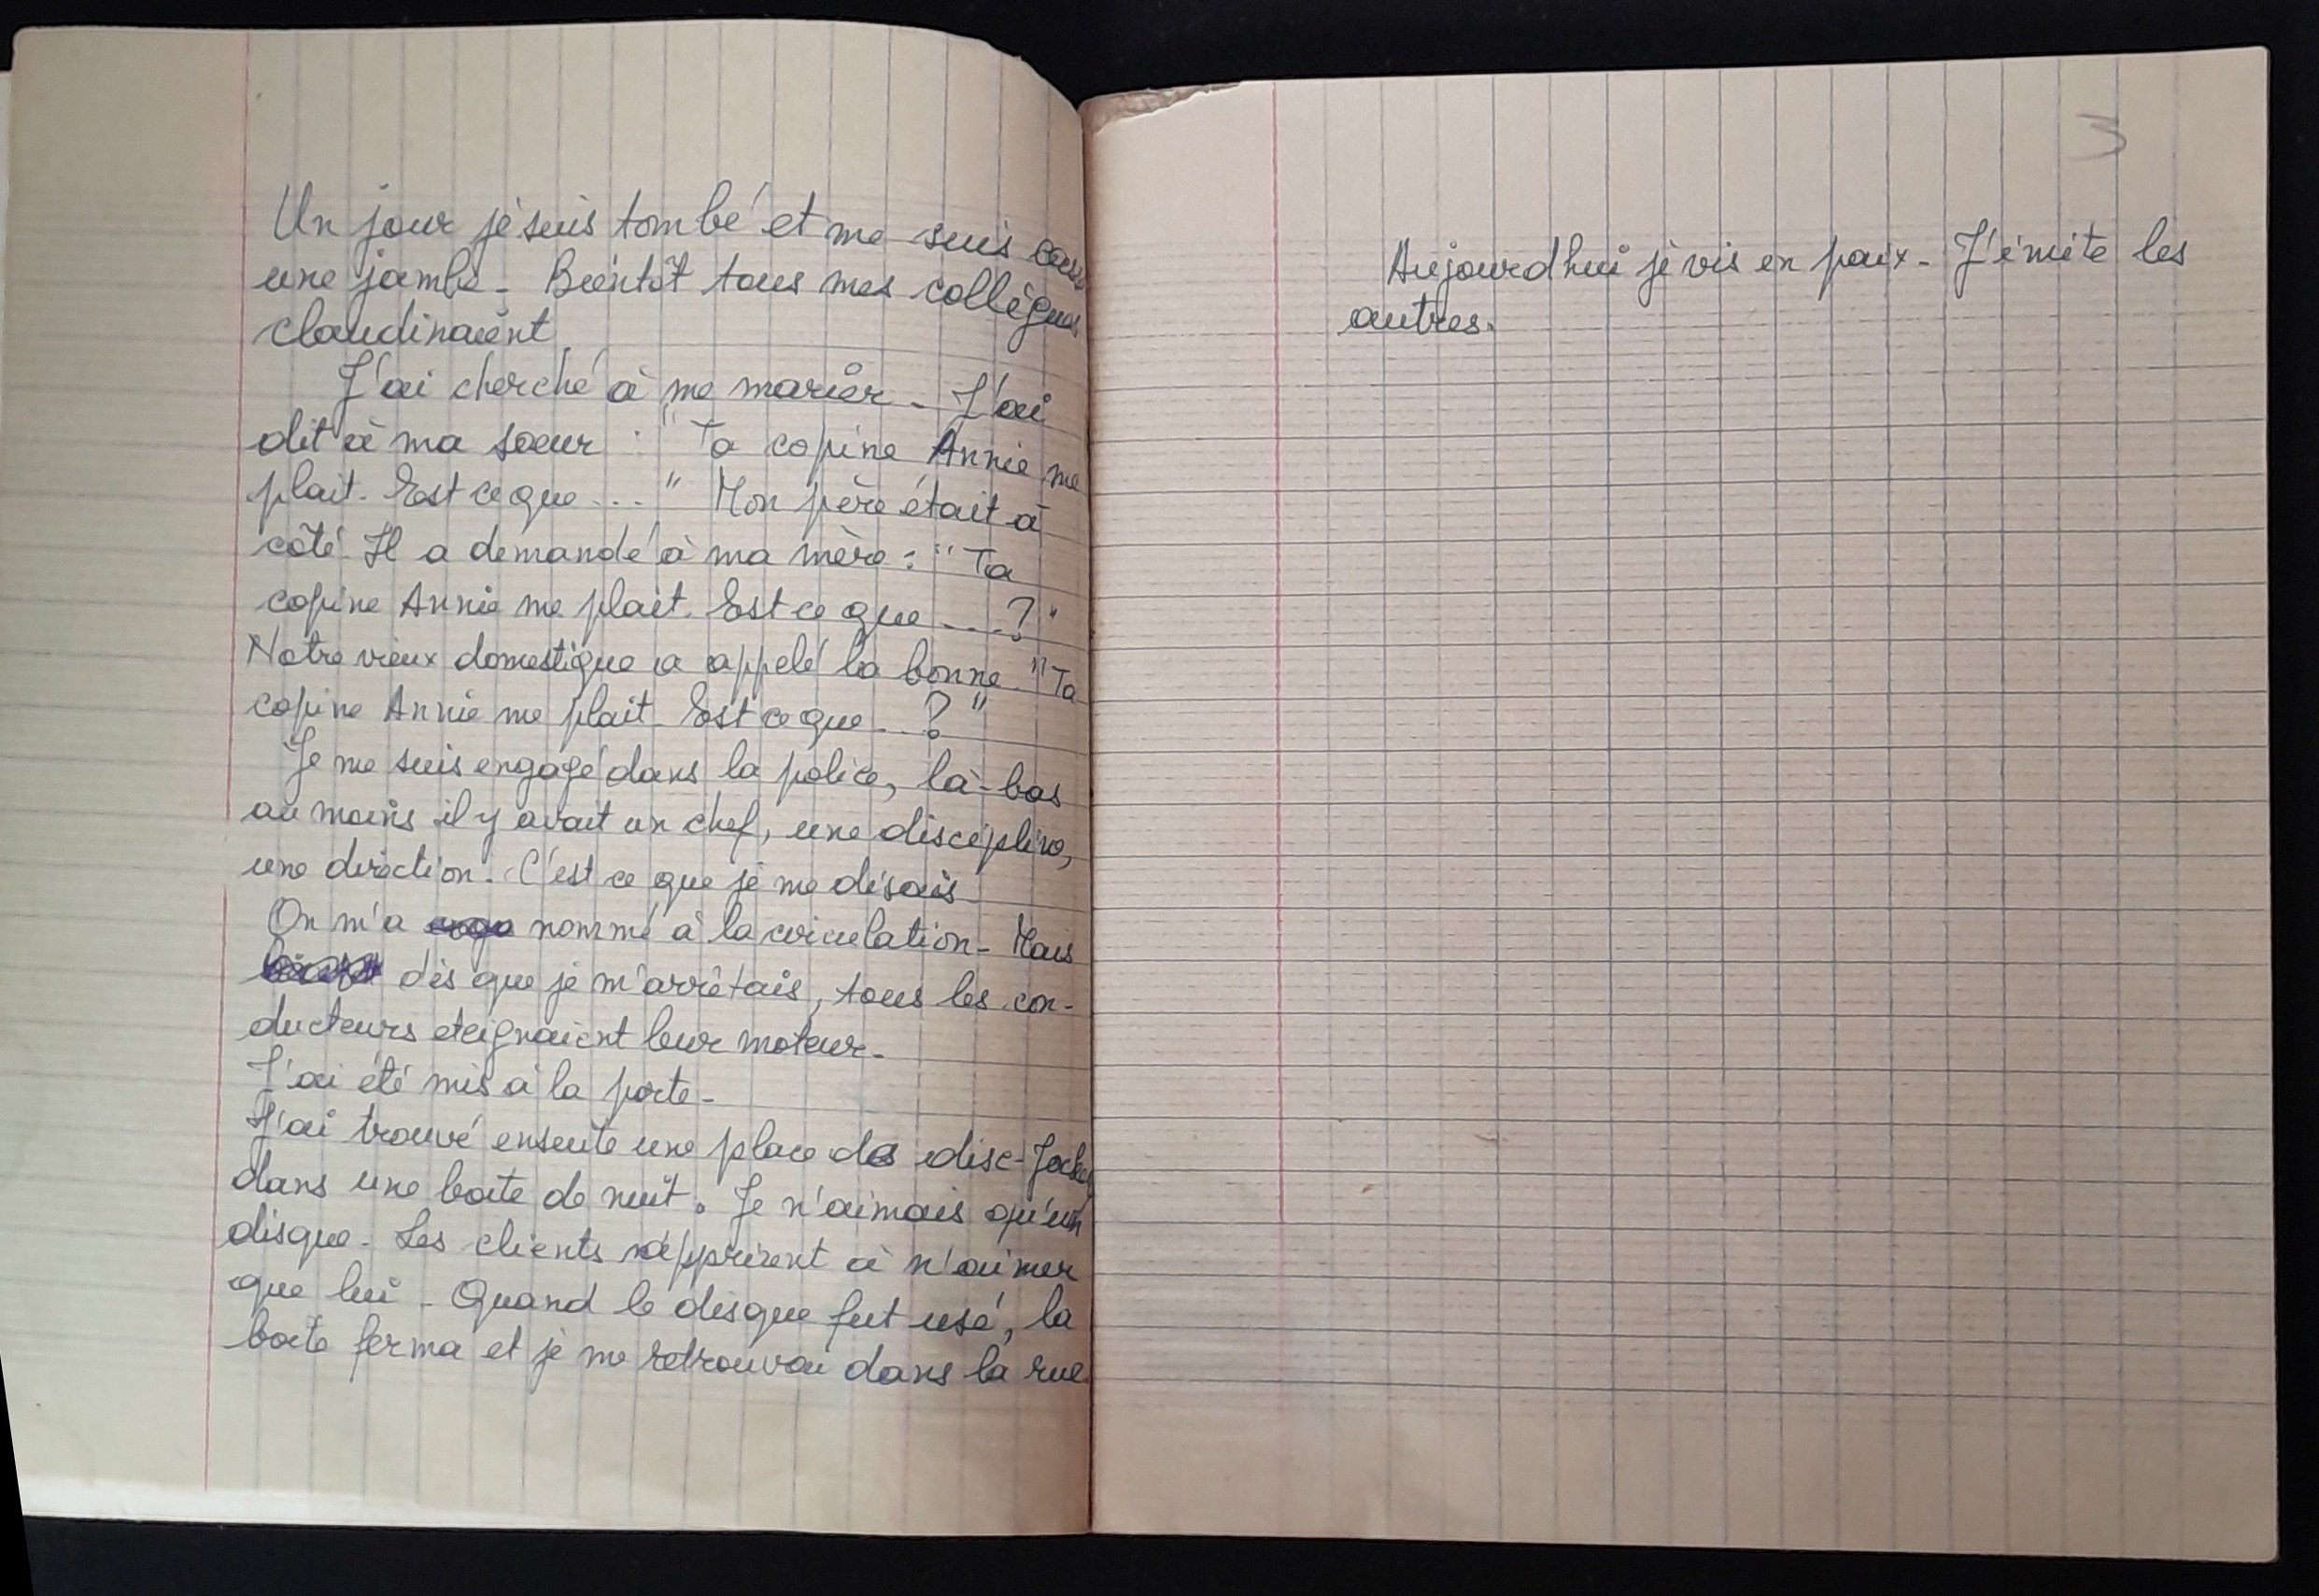 Un jour je suis tombé et me suis cassé
une jambe. Bientôt tous mes collègues
claudinaient
J'ai cherché à me marier. J'ai
dit à ma soeur : "Ta copine Annie me
plait. Est ce que ... " Mon père était à
côté. Il a demandé à ma mère : "Ta
copine Annie me plait. Est ce que ....?"
Notre vieux domestique a appelé la bonne. "Ta
copine Annie me plait. Est ce que ..?"
Je me suis engagé dans la police, là-bas
au moins il y avait un chef, une discipline,
une direction. C'est ce que je me disais
On m'a nommé à la circulation. Mais
dès que je m'arrêtais, tous les con-
ducteurs eteignaient leur moteur.
J'ai été mis à la porte.
J'ai trouvé ensuite une place de disc-Jockey
dans une boite de nuit. Je n'aimais qu'un
disque. Les clients apprirent à n'aimer
que lui. Quand le disque fut usé, la
boite ferma et je me retrouvai dans la rue.
3
Aujourd'hui je vis en paix. J'imite les
autres.